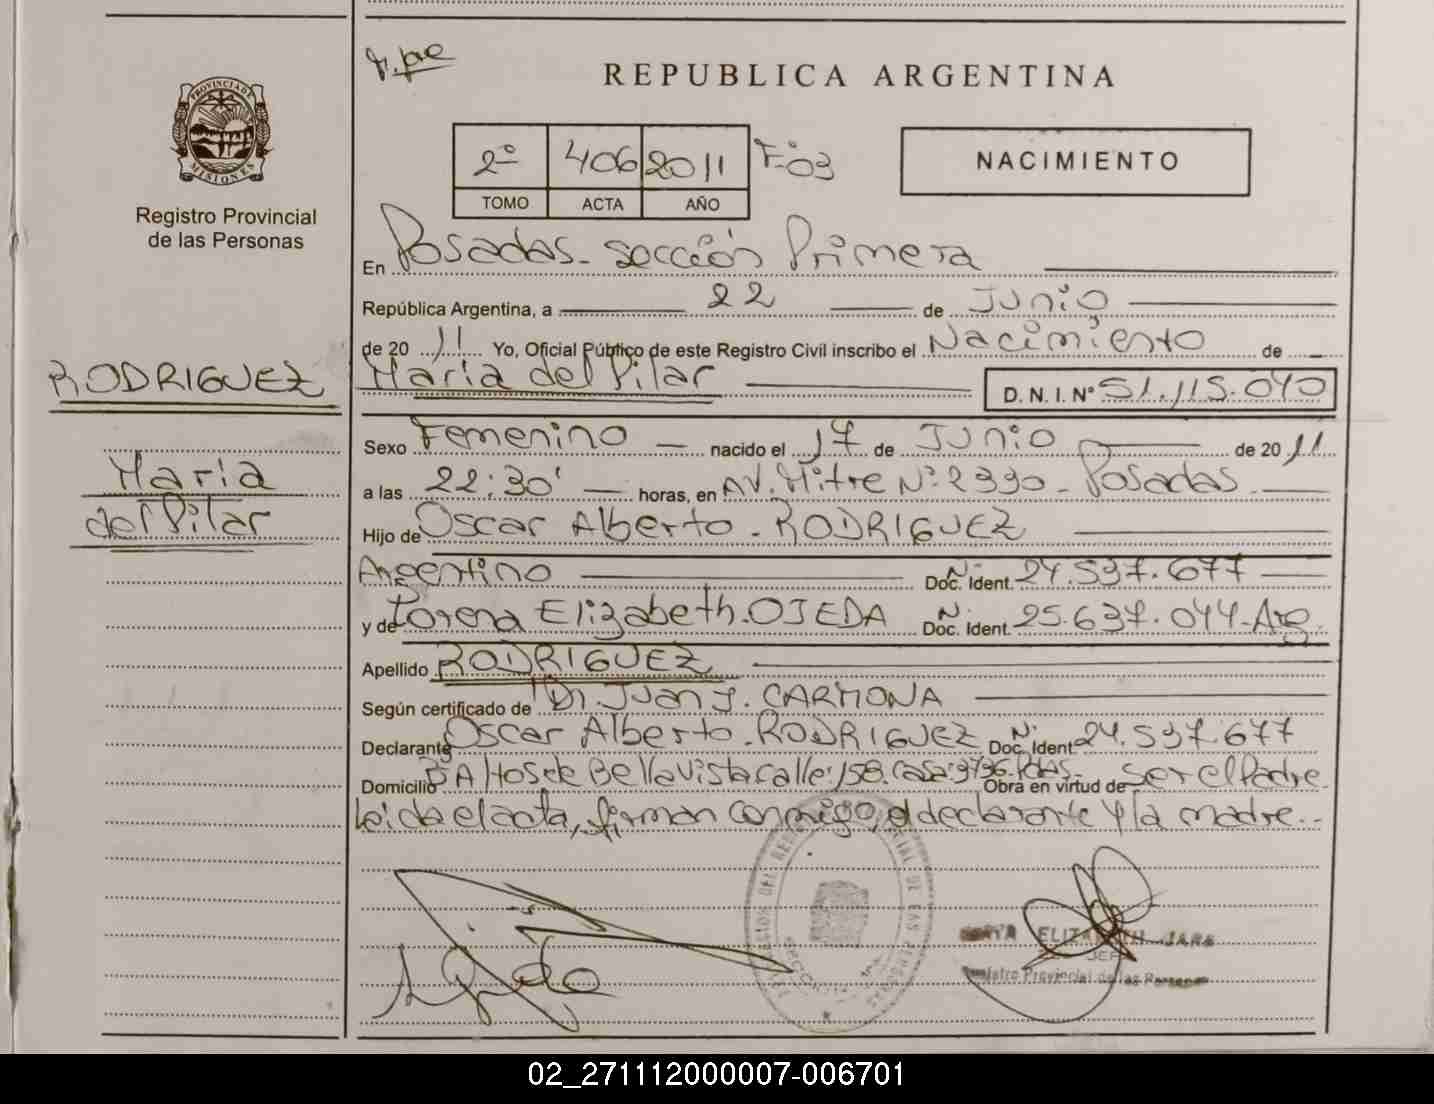 PROVINCIA DE
MISIONES
Registro Provincial
de las Personas
RODRIGUEZ
Maria
del Pilar
REPUBLICA ARGENTINA
2º 406 2011 Fº 03
TOMO ACTA AÑO
NACIMIENTO
En Posadas - sección Primera
República Argentina, a 22 de Junio
de 20 11 Yo, Oficial Público de este Registro Civil inscribo el Nacimiento de
Maria del Pilar D. N. I. Nº 51.115.040
Sexo Femenino nacido el 17 de Junio de 20 11
a las 22:30' horas, en AV. Mitre Nº 2330 - Posadas
Hijo de Oscar Alberto - RODRIGUEZ
Argentino Doc. Ident. Nº 24.537.677
y de Lorena Elizabeth - OJEDA Doc. Ident. Nº 25.637.044 - Arg.
Apellido RODRIGUEZ
Según certificado de Dr. Juan J. CARMONA
Declarante Oscar Alberto - RODRIGUEZ Doc. Ident. Nº 24.537.677
Domicilio Bº Altos de Bella Vista calle: 158. casa: 3736. Pdas - Obra en virtud de Ser el Padre
Leida el acta, firman conmigo, el declarante y la madre.-
ELIZABETH JARA
JEFA
Registro Provincial de las Personas
02_271112000007-006701